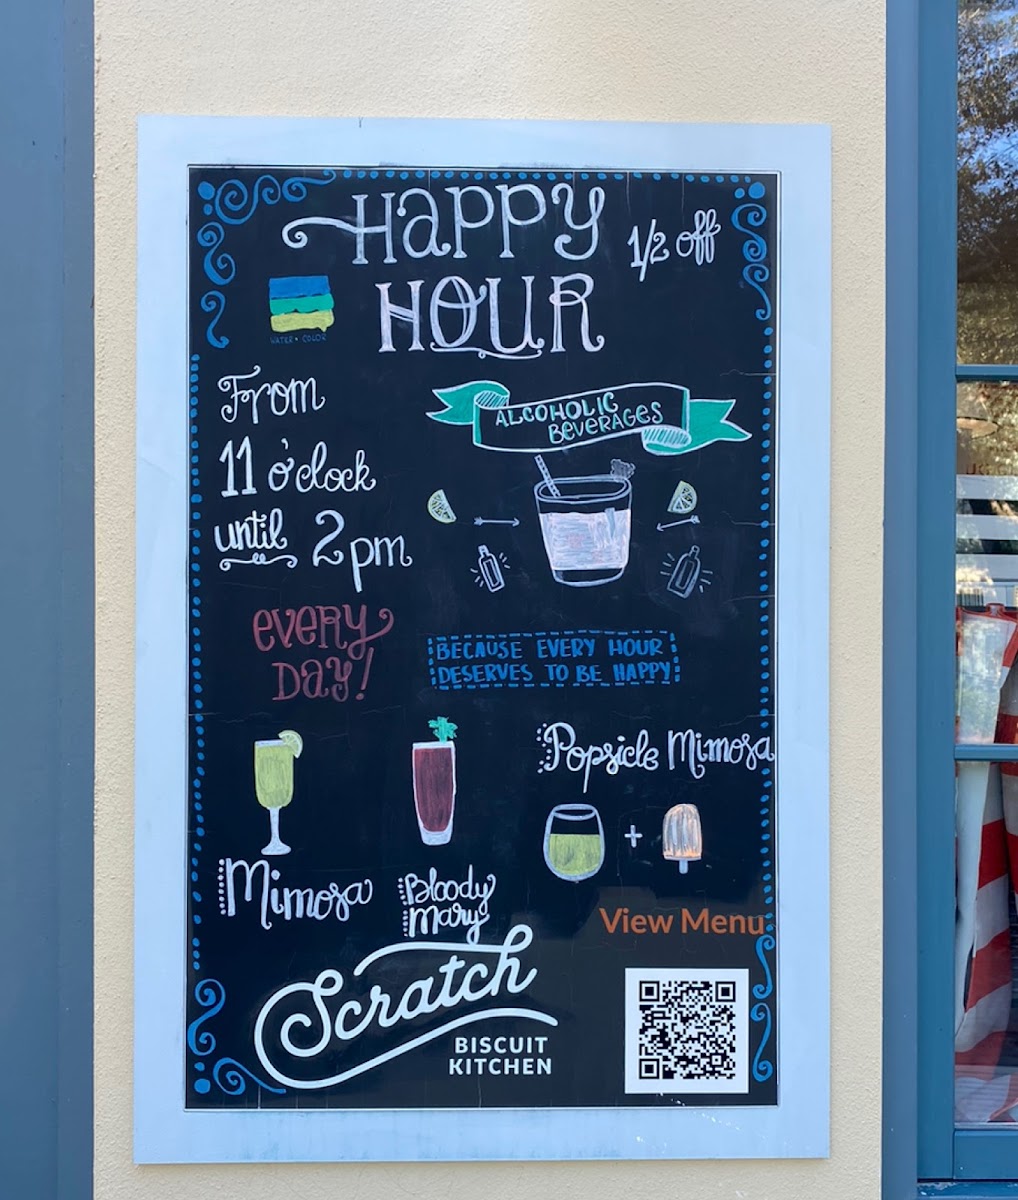 Happy
1/2 off
HOUR
WATER • COLOR
From
11 o'clock
until 2pm
ALCOHOLIC
BEVERAGES
every
Day!
BECAUSE EVERY HOUR
DESERVES TO BE HAPPY
Mimosa
Bloody
Mary
Popsicle Mimosa
+
View Menu
Scratch
BISCUIT
KITCHEN